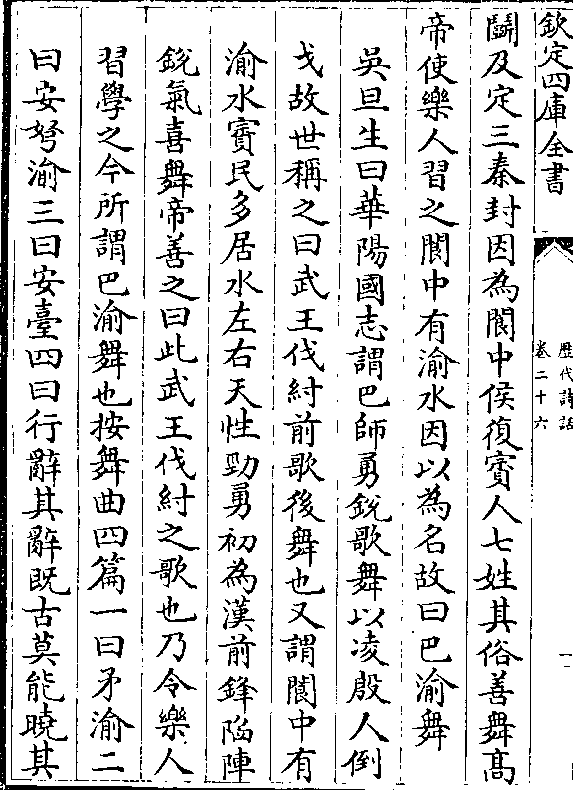 欽定四庫全書
歷代詩話
卷二十六
一
鬭及定三秦封因為閬中侯復賨人七姓其俗善舞髙
帝使樂人習之閬中有渝水因以為名故曰巴渝舞
吳旦生曰華陽國志謂巴師勇鋭歌舞以凌殷人倒
戈故世稱之曰武王伐紂前歌後舞也又謂閬中有
渝水賨民多居水左右天性勁勇初為漢前鋒陷陣
鋭氣喜舞帝善之曰此武王伐紂之歌也乃令樂人
習學之今所謂巴渝舞也按舞曲四篇一曰矛渝二
曰安弩渝三曰安臺四曰行辭其辭既古莫能曉其